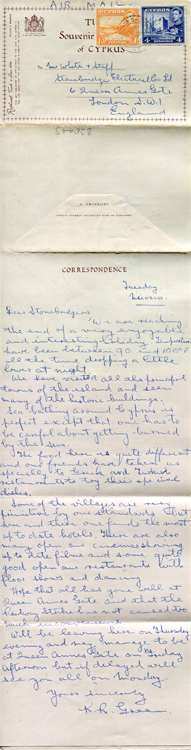 AIR MAIL
Souvenir
of CYPRUS
CYPRUS
CYPRUS
To Mrs White & Staff
Stonebridge Electrical Co Ltd
6 Queen Annes Gate
London S.W.1
England
CORRESPONDENCE
Tuesday
Nicosia
Dear Stonebridgers,
We are reaching
the end of a very enjoyable
and interesting holiday. Temperatures
have been between 90 and 100°F
all the time dropping a little
lower at night.
We have visited all the principal
towns of the island and seen
many of the historic buildings.
Sea bathing around Cyprus is
perfect except that one has to
be careful about getting burned
by the sun.
The food here is quite different
and our friends have taken us
specially to Greek and Turkish
restaurants to try their special
dishes.
Some of the villages are very
primitive by our standards but
now and then one finds the most
up to date hotels. There are also
many open air cinemas showing
up to date films and some quite
good open air restaurants with
floor shows and dancing
Hope that all goes well at
Queen Annes Gate and that the
Railway Strike has not caused too
much inconvenience.
Will be leaving here on Thursday
evening and may manage to be
at Queen Annes Gate on Friday
afternoon but if delayed will
see you all on Monday.
Yours sincerely
K. R. Green